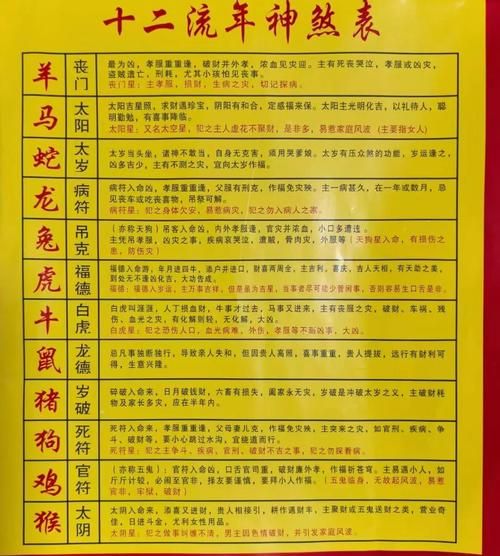 十二流年神煞表
羊
丧门
最为凶，孝服重重逢，破财并外孝，浓血见灾迎。主有死丧哭泣，孝服或凶灾，
盗贼遗亡，刑耗，尤其小孩怕见丧事。
丧门星：主孝服，损财，生病之灾，切记探病。
马
太阳
太阳吉星照，求财遇珍宝，阴阳有和合，定感福来保。太阳主光明化吉，以礼待人，聪
明勤勉，有喜事降临。
太阳星：又名太空星，犯之主人虚花不聚财，是非多，易惹家庭风波（主要指女人）
蛇
太岁
太岁当头坐，诸神不敢当，自身无克害，须用哭爹娘。太岁有压众煞的功能，岁运逢之，
凶多吉少，主有不测之灾，宜向太岁作福。
龙
病符
病符入命宫，孝服重重逢，父服有刑克，作福免灾殃。主一病甚久，在一年或数月，忌
见丧车或吃丧喜物，吊祭可解。
病符星：犯之身体欠安，易惹病灾，犯之勿入病人之家。
兔
吊克
（亦称天狗）吊客入命凶，内外孝服逢，官灾并浓血，小口多遭迍。
主凭吊孝服，凶灾之事，疾病哀哭泣，遭贼，骨肉灾，外服等（天狗星入命，有损伤之
患，防伤灾）
虎
福德
福德入命游，年月进四牛，添户并进口，财喜两周全，主吉利，喜庆，吉人天相，有天助之美，
到处之处无不逢凶化吉，大功告成。
福德：福德入岁运，主万事吉祥，但是最为吉星，当事者尽可能少管闲事，否则容易生口舌是非。
牛
白虎
白虎叫涯涯，人丁损血财，牛事才过去，马事又进来，主有丧服之灾，破财、车祸、残
伤、血光之灾，有化解则轻，无化解，大凶。
白虎星：犯之恐伤人口，血光病难，外伤，孝服等不脑凶事，大凶。
鼠
龙德
总凡事独断独行，导致亲人失和，但因贵人高照，喜事重重，贵人提拔，远行有财利可
得，生意兴隆。
猪
岁破
碎破入命来，日月破钱财，六畜有损失，阖家永无灾，岁破是冲破太岁之义，主破财耗
物及家长多灾，应在半年内。
狗
死符
死符入命来，孝服重重逢，父母妻儿克，作福免灾殃，主突来之灾，如官刑、疾病、争
斗、破财等，要小心跳过水沟，宜绕道而行。
死符星：犯之主争斗、疾病、官刑、破财不吉之事，犯之勿探看病。
鸡
官符
（亦称五鬼）：官符入命凶，口舌官司重，破财廉外孝，作福祈苍穹。主易遇小人，如
斤斤计较，必闹至官非，择友要谨慎，要拜小人作福。（五鬼临身，无故起风波，易惹
官非，牢狱，破财）
猴
太阴
太阴入命来，添喜又进财，贵人相接引，耕作遇财丰，主聚财或五鬼送财之类，营业奇
佳，日进斗金，尤利女性用品。
太阴星：犯之做事纠缠不清，男主因色情破财，并引发家庭风波。